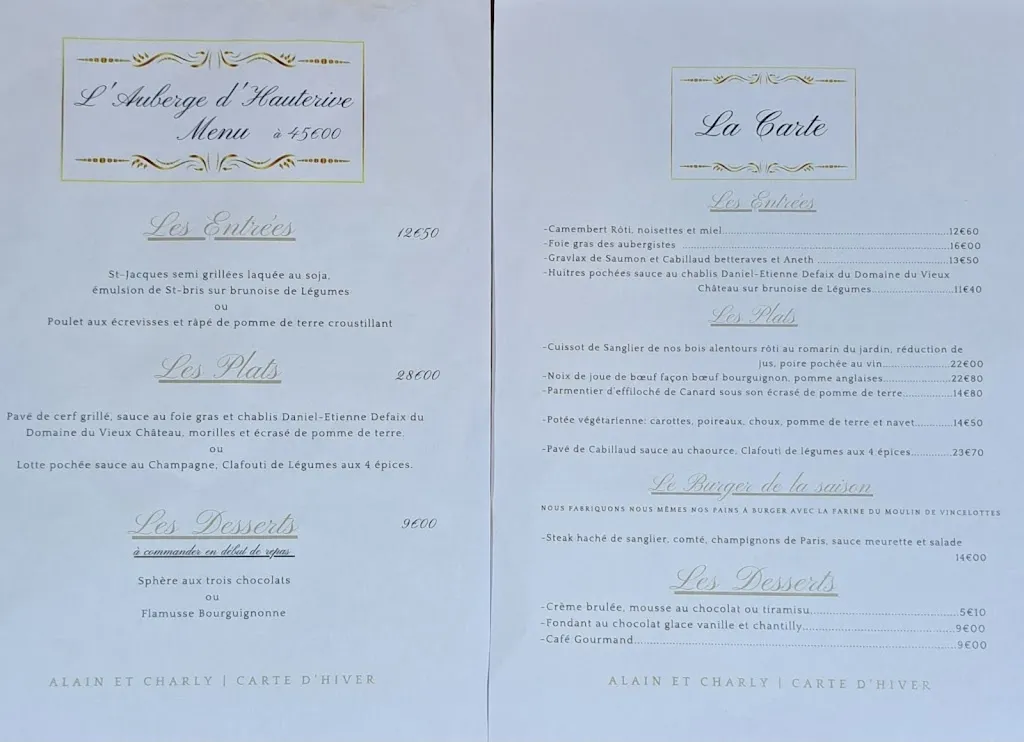 L'Auberge d'Hauterive
Menu à 45€00
Les Entrées 12€50
St-Jacques semi grillées laquée au soja,
émulsion de St-bris sur brunoise de Légumes
ou
Poulet aux écrevisses et râpé de pomme de terre croustillant
Les Plats 28€00
Pavé de cerf grillé, sauce au foie gras et chablis Daniel-Etienne Defaix du
Domaine du Vieux Château, morilles et écrasé de pomme de terre.
ou
Lotte pochée sauce au Champagne, Clafouti de Légumes aux 4 épices.
Les Desserts 9€00
à commander en début de repas
Sphère aux trois chocolats
ou
Flamusse Bourguignonne
ALAIN ET CHARLY | CARTE D'HIVER
La Carte
Les Entrées
-Camembert Rôti, noisettes et miel...12€60
-Foie gras des aubergistes ...16€00
-Gravlax de Saumon et Cabillaud betteraves et Aneth ...13€50
-Huitres pochées sauce au chablis Daniel-Etienne Defaix du Domaine du Vieux
Château sur brunoise de Légumes...11€40
Les Plats
-Cuissot de Sanglier de nos bois alentours rôti au romarin du jardin, réduction de
jus, poire pochée au vin...22€00
-Noix de joue de bœuf façon bœuf bourguignon, pomme anglaises...22€80
-Parmentier d'effiloché de Canard sous son écrasé de pomme de terre...14€80
-Potée végétarienne: carottes, poireaux, choux, pomme de terre et navet...14€50
-Pavé de Cabillaud sauce au chaource, Clafouti de légumes aux 4 épices...23€70
Le Burger de la saison
NOUS FABRIQUONS NOUS MÊMES NOS PAINS À BURGER AVEC LA FARINE DU MOULIN DE VINCELOTTES
-Steak haché de sanglier, comté, champignons de Paris, sauce meurette et salade
14€00
Les Desserts
-Crème brulée, mousse au chocolat ou tiramisu...5€10
-Fondant au chocolat glace vanille et chantilly...9€00
-Café Gourmand...9€00
ALAIN ET CHARLY | CARTE D'HIVER